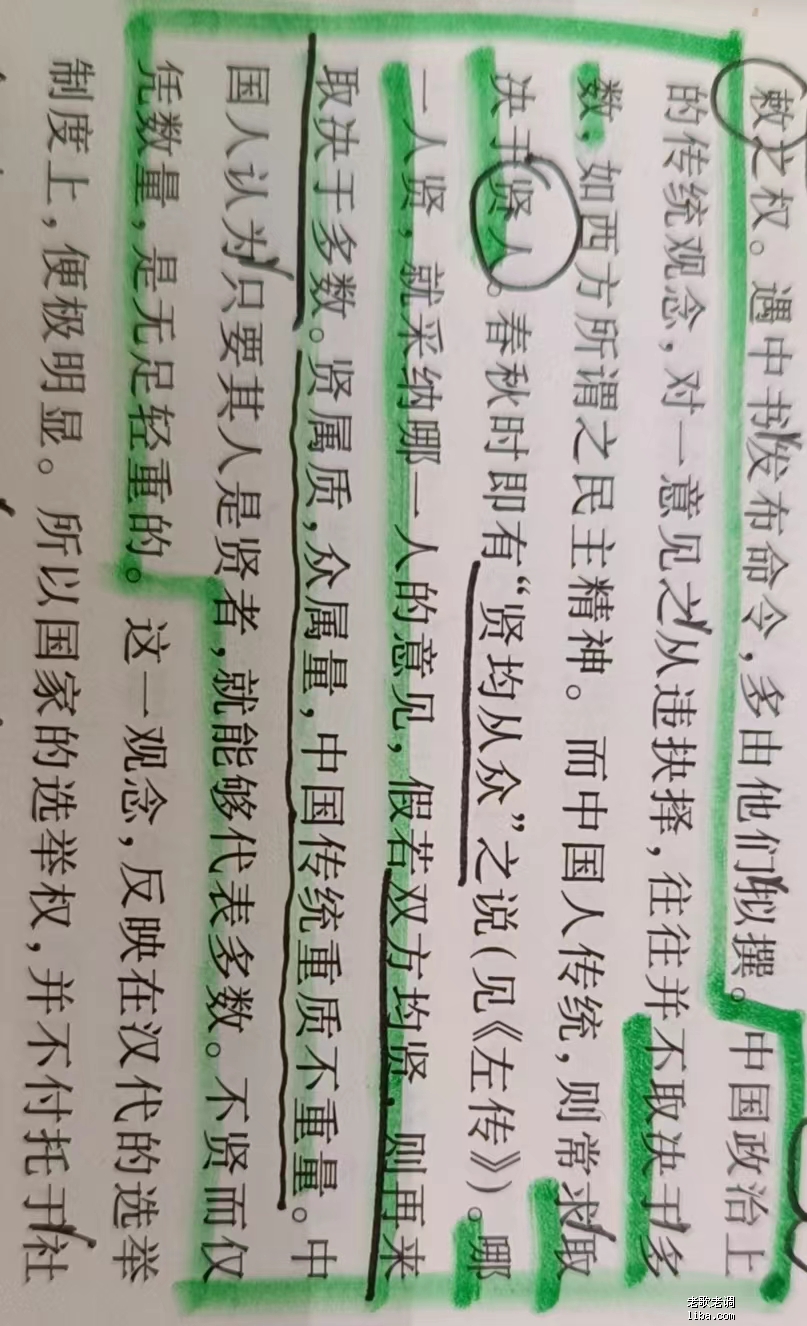 敕之权。遇中书发布命令，多由他们拟撰。中国政治上
的传统观念，对一意见之从违抉择，往往并不取决于多
数，如西方所谓之民主精神。而中国人传统，则常求取
决于贤人。春秋时即有“贤均从众”之说（见《左传》）。哪
一人贤，就采纳哪一人的意见，假若双方均贤，则再来
取决于多数。贤属质，众属量，中国传统重质不重量。中
国人认为只要其人是贤者，就能够代表多数。不贤而仅
凭数量，是无足轻重的。这一观念，反映在汉代的选举
制度上，便极明显。所以国家的选举权，并不付托于社
老歌老调
liba.com